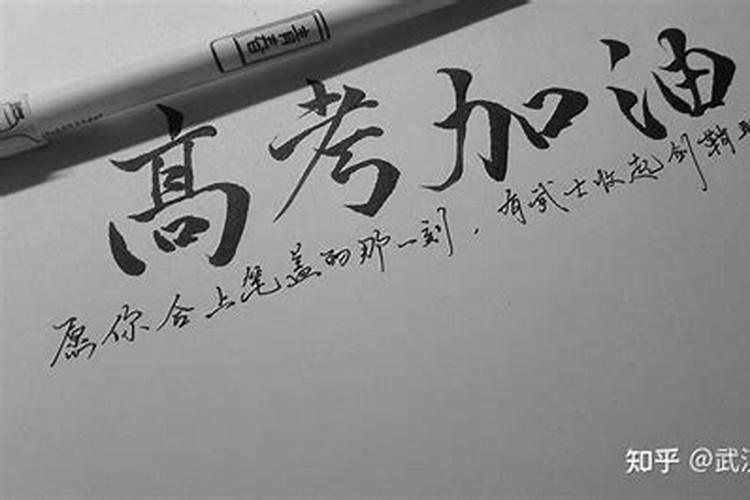 高考加油
愿你合上笔盖的那一刻，有武士收起剑鞘
知乎 @武